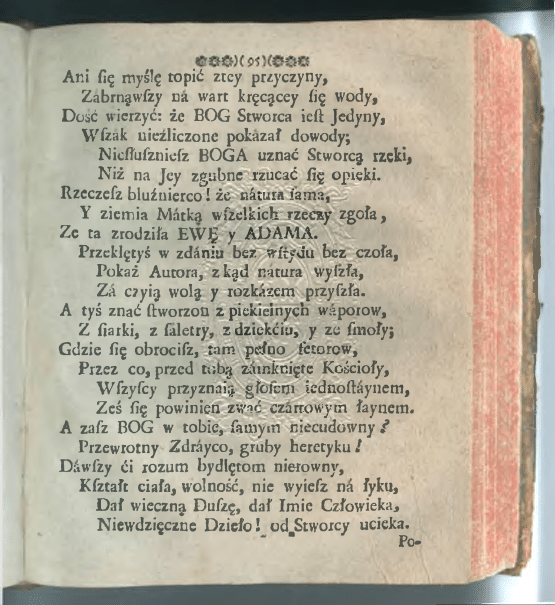 )( 95 )(
Ani ſię myślę topić ztey przyczyny,
Zábrnąwſzy ná wart kręcącey ſię wody,
Dość wierzyć: że BOG Stworca ieſt Jedyny,
Wſzák niezliczone pokázał dowody;
Nieſłuſznieſz BOGA uznać Stworcą rzeki,
Niż na Jey zgubne rzucać ſię opieki.
Rzeczeſz bluźnierco! że nátura ſama,
Y ziemia Mátką wſzelkich rzeczy zgoła,
Ze ta zrodziła EWĘ y ADAMA.
Przeklętyś w zdániu bez wſtydu bez czoła,
Pokaż Autora, zkąd natura wyſzła,
Zá czyią wolą y rozkázem przyſzła.
A tyś znać ſtworzon z piekielnych wáporow,
Z ſiarki, z ſaletry, z dziekćiu, y ze ſmoły;
Gdzie ſię obrociſz, tam pełno fetorow,
Przez co, przed tobą zámknięte Kościoły,
Wſzyſcy przyznaią głoſem iednoſtáynem,
Ześ ſię powinien zwać czártowym łaynem.
A zaſz BOG w tobie, ſamym niecudowny?
Przewrotny Zdráyco, gruby heretyku!
Dáwſzy ći rozum bydlętom nierowny,
Kſztałt ciała, wolność, nie wyieſz ná łyku,
Dał wieczną Duſzę, dał Imie Człowieka,
Niewdzięczne Dzieło! od Stworcy ucieka.
Po-